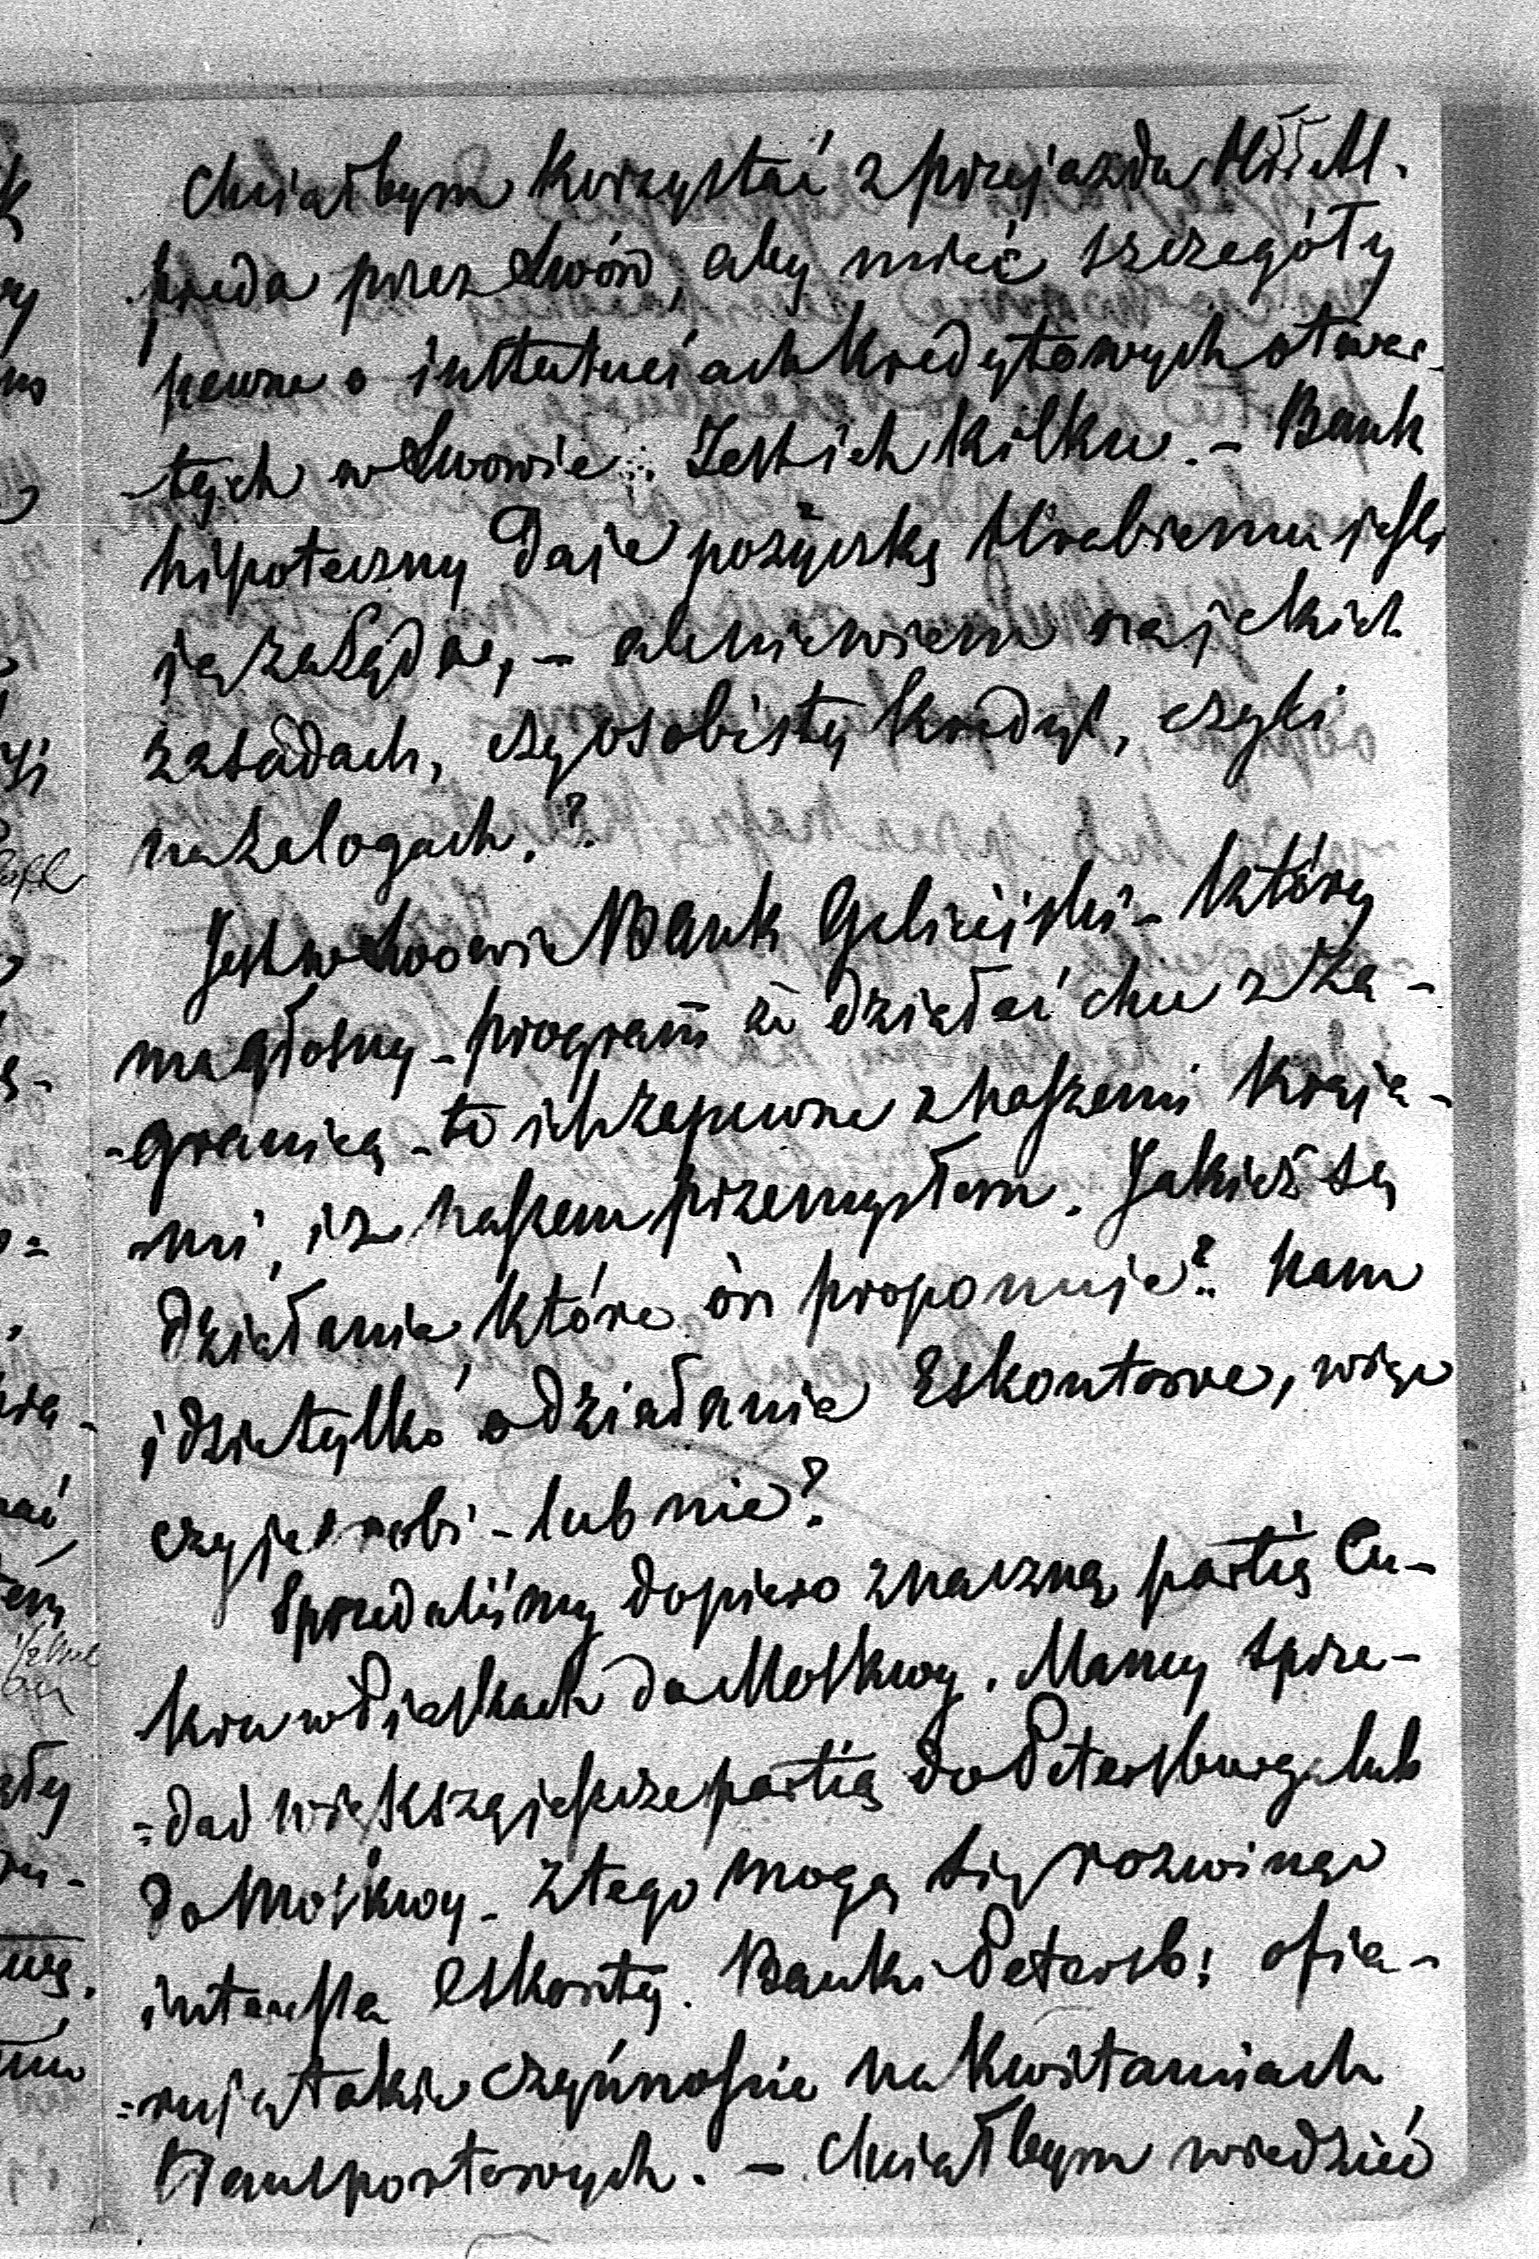 Chciałbym korzystać z przejazdu
przez Lwów, aby mieć szczegóły
pewne o instytuciach kredytowych otwar-
-tych w Lwowie. Jest ich kilku. - Bank
hipoteczny daje pożyczkę Hrabiemu jeśli
ją zażąda, - ale nie wiem na jakich
zasadach, czy osobisty kredyt, czyli
na zalogach.?
Jest w Lwowie Bank Galicijski - który
ma głośny - program że działać chce z za-
-granicą - to jest zapewne z naszemi kraja-
-mi, i z naszem przemysłem. Jakież są
działania, które on proponuje? nam
idzie tylko o działanie Eskontowe, więc
czy je robi - lub nie?
Sprzedaliśmy dopiero znaczną partią Cu-
kru w Piaskach do Moskwy. Mamy sprze-
=dać większą jeszcze partią do Petersburga lub
do Moskwy - z tego mogą się rozwinąć
interesa eskonty. Banki Petersb: ofia-
=rują takie czynnoście na kwitaniach
transportowych. - Chciałbym wiedzieć